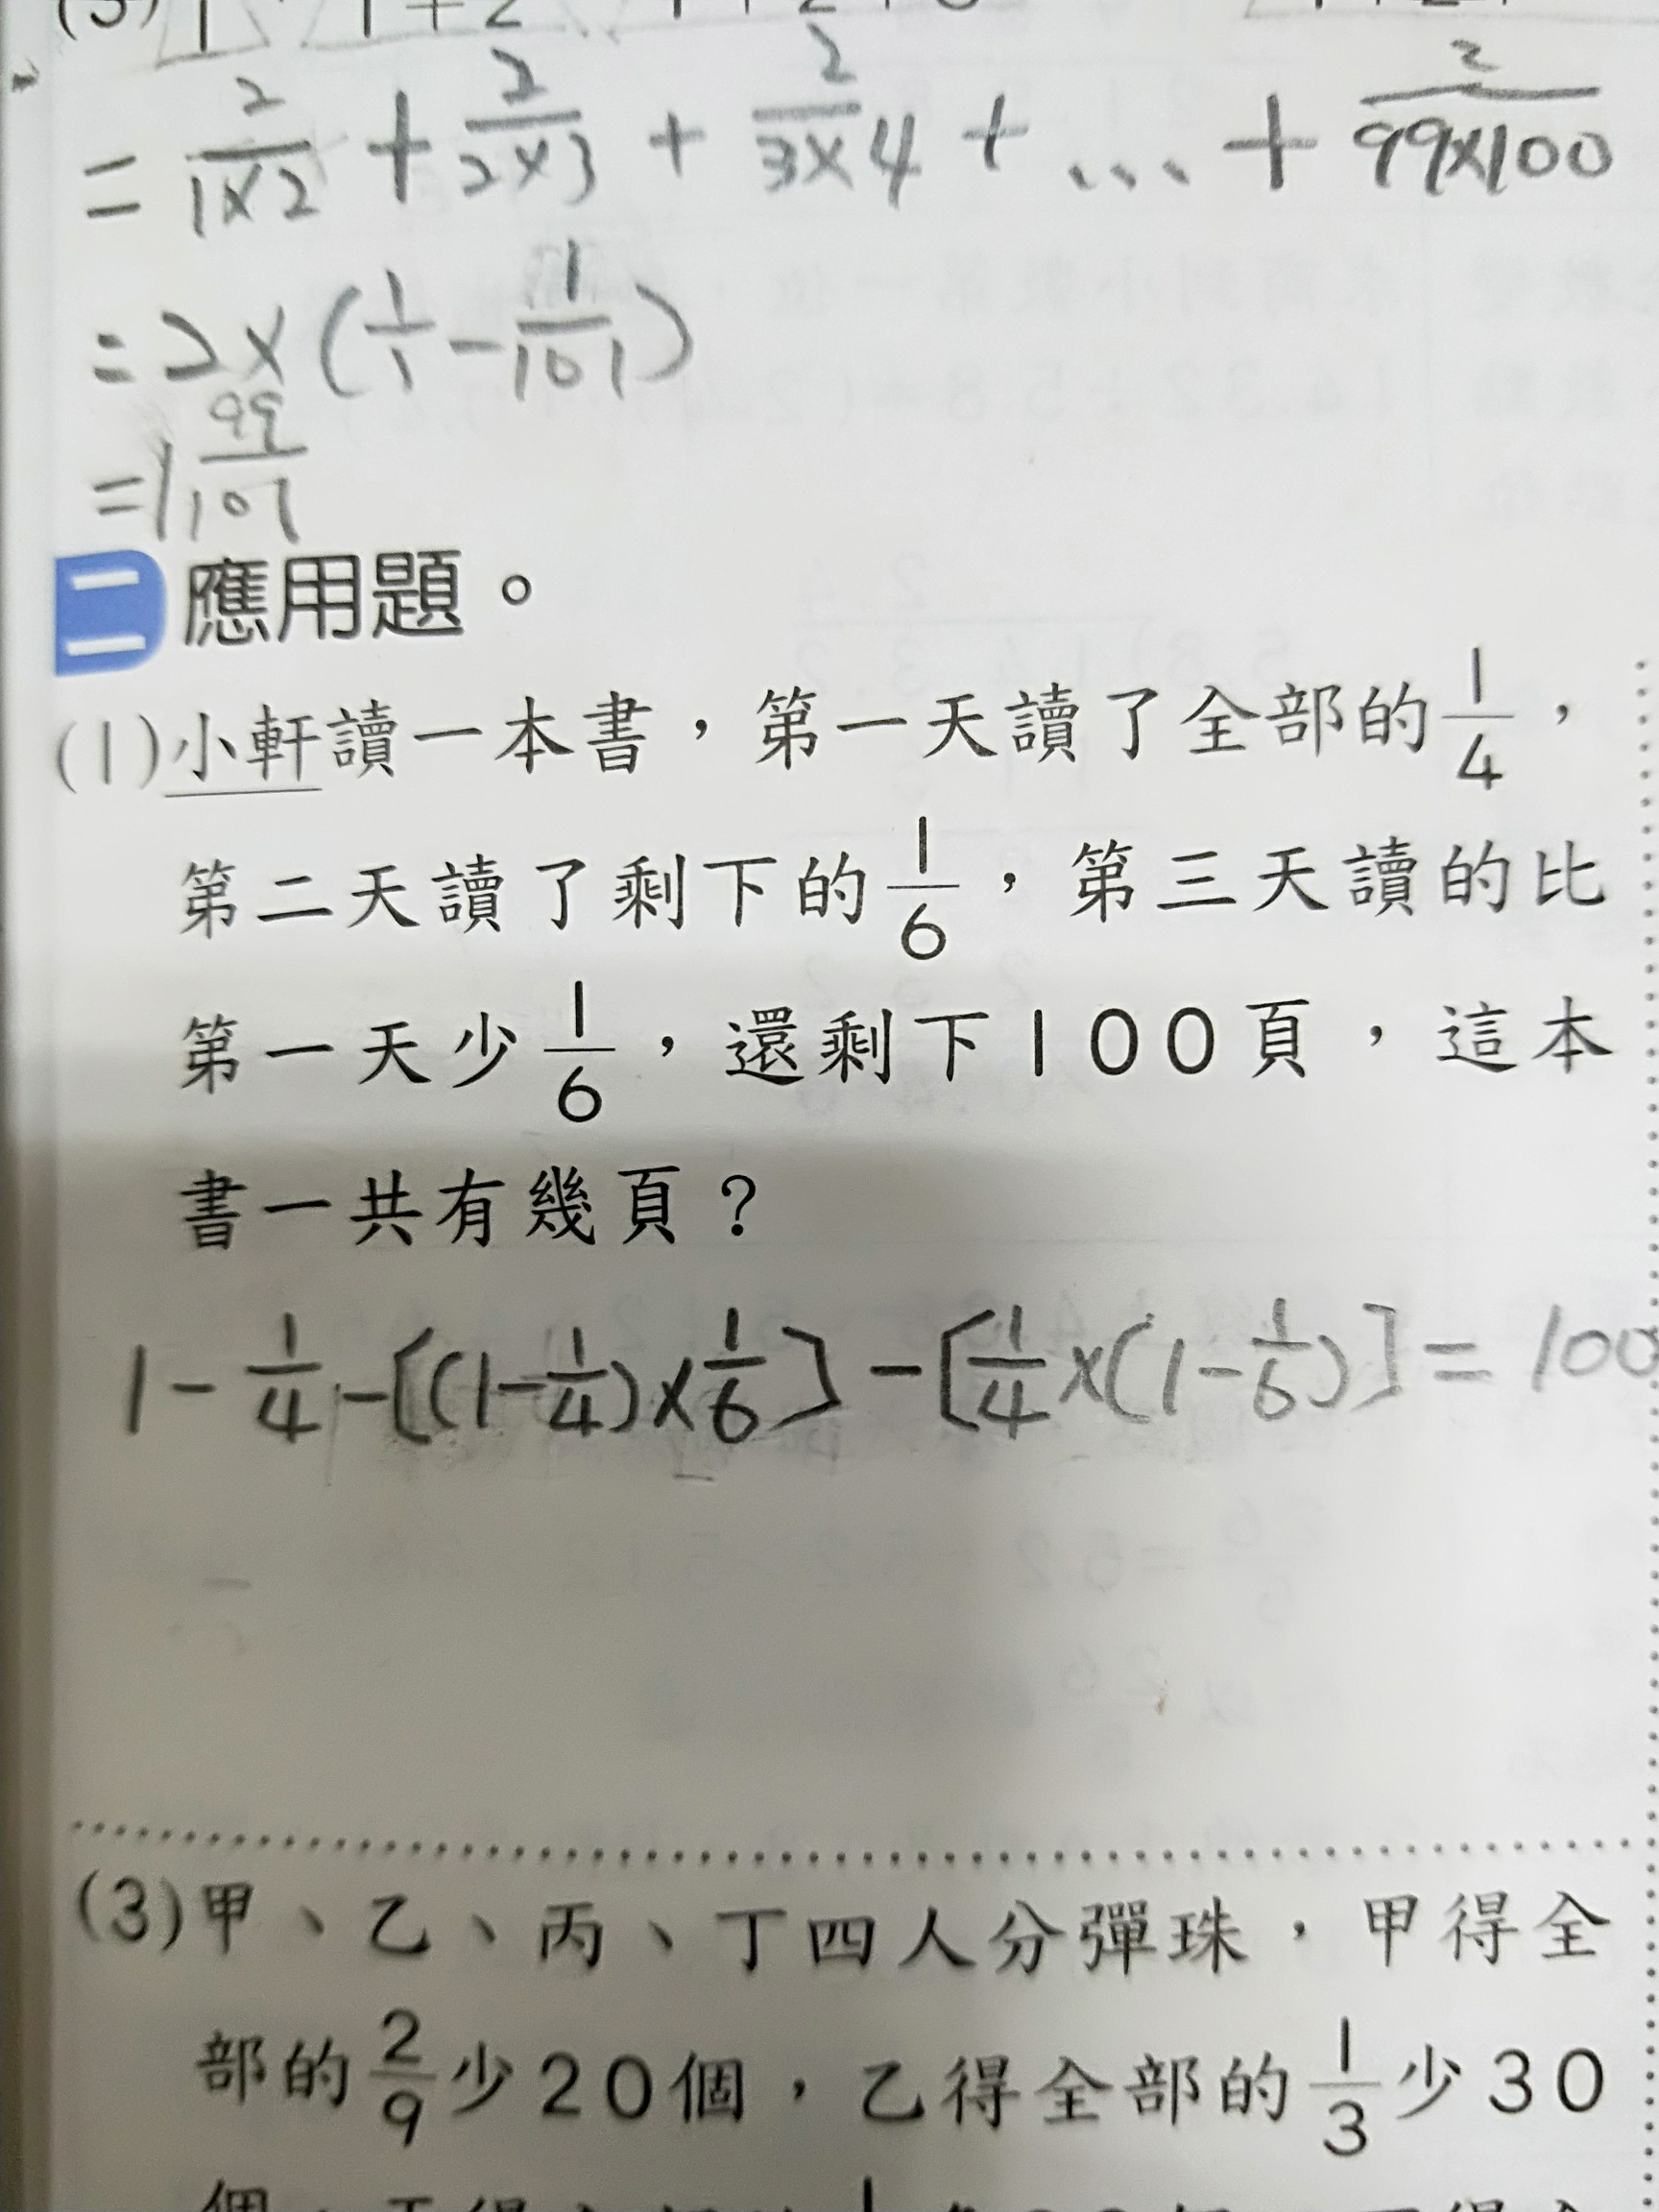 = 2/1×2 + 2/2×3 + 2/3×4 + ... + 2/99×100
= 2×(1/1 - 1/101)
= 1 99/101
二 應用題。
(1)小軒讀一本書,第一天讀了全部的1/4,
第二天讀了剩下的1/6,第三天讀的比
第一天少1/6,還剩下100頁,這本
書一共有幾頁?
1 - 1/4 - [(1-1/4)×1/6] - [1/4×(1-1/6)] = 100
(3)甲、乙、丙、丁四人分彈珠,甲得全
部的2/9少20個,乙得全部的1/3少30